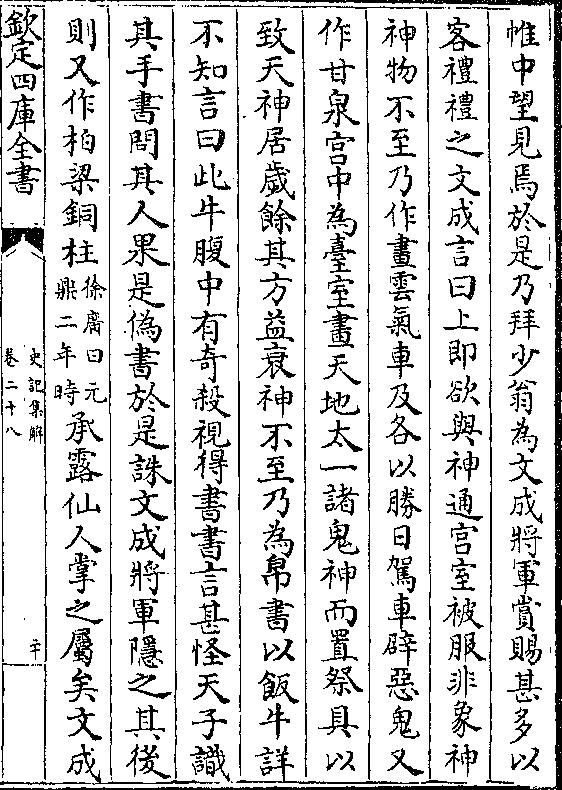 帷中望見焉於是乃拜少翁為文成將軍賞賜甚多以
客禮禮之文成言曰上即欲與神通宫室被服非象神
神物不至乃作畫雲氣車及各以勝日駕車辟惡鬼又
作甘泉宫中為臺室畫天地太一諸鬼神而置祭具以
致天神居歲餘其方益衰神不至乃為帛書以飯牛詳
不知言曰此牛腹中有奇殺視得書書言甚怪天子識
其手書問其人果是偽書於是誅文成將軍隱之其後
則又作柏梁銅柱徐廣曰元鼎二年時承露仙人掌之屬矣文成
欽定四庫全書
史記集解
卷二十八
二十